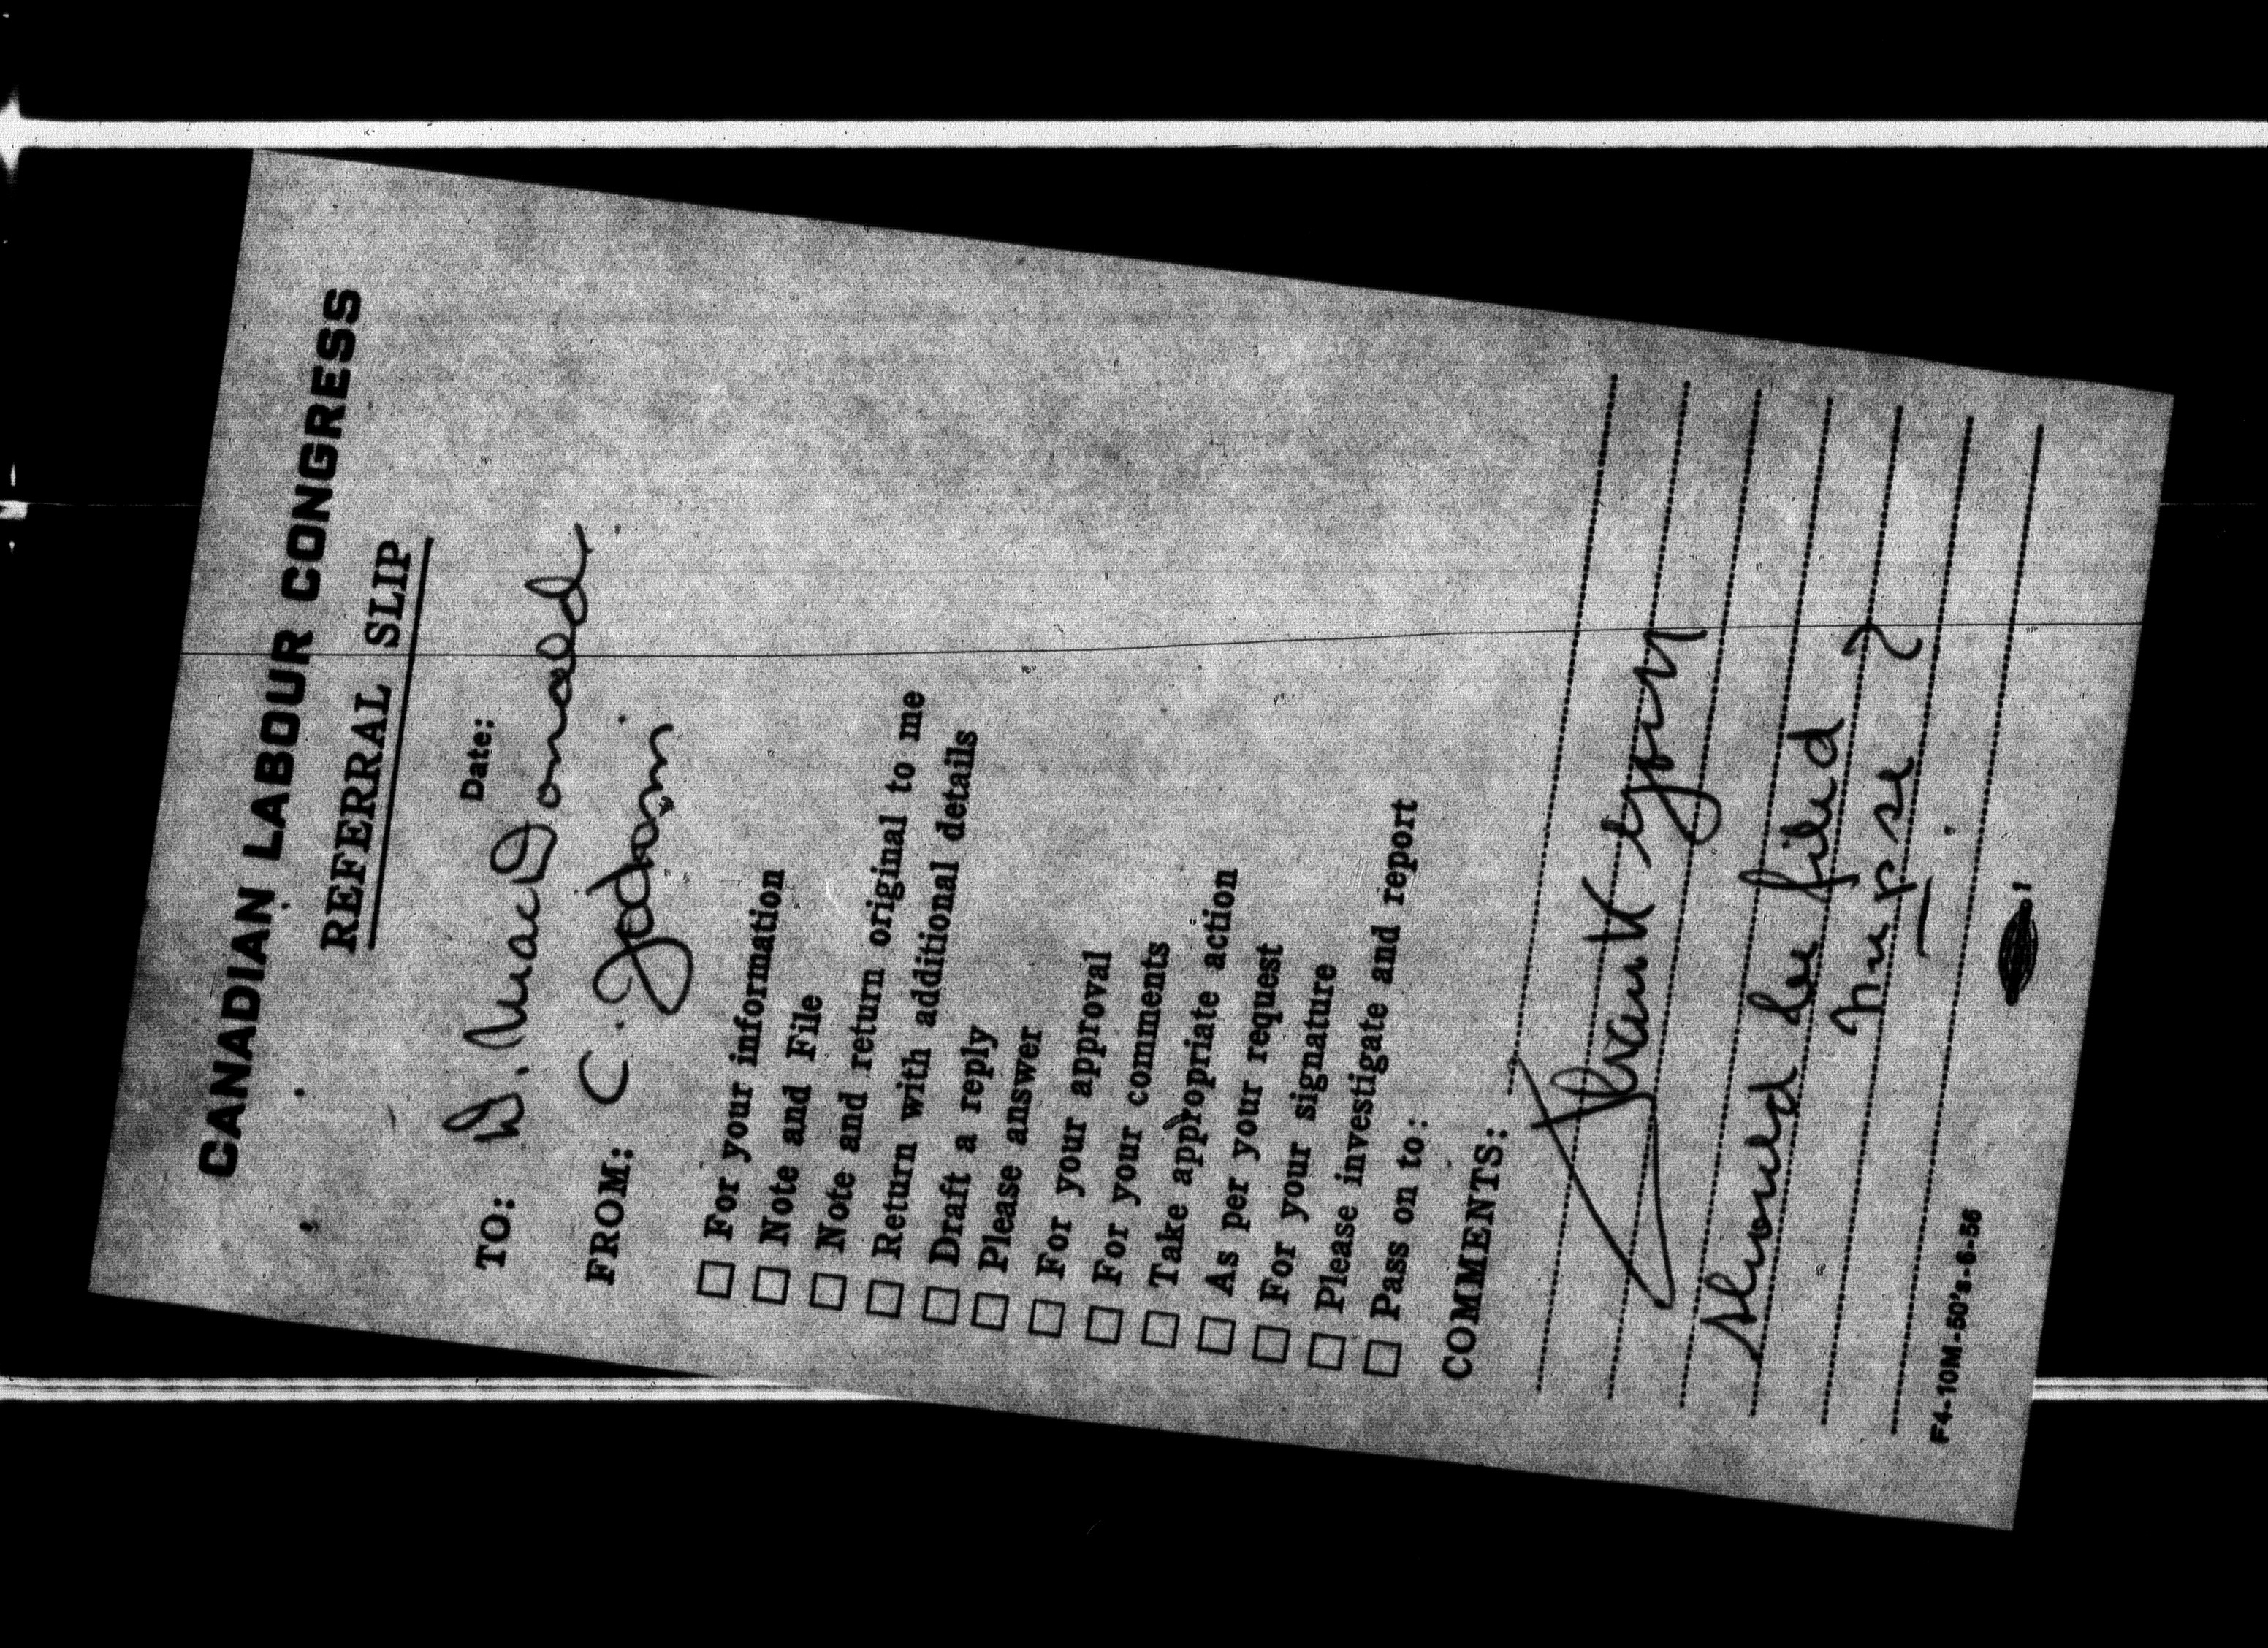 CANADIAN LABOUR CONGRESS
REFERRAL SLIP
Date:
TO: D. MacDonald
FROM: C. Jodoin
☐ For your information
☐ Note and File
☐ Note and return original to me
☐ Return with additional details
☐ Draft a reply
☐ Please answer
☐ For your approval
☐ For your comments
☐ Take appropriate action
☐ As per your request
☐ For your signature
☐ Please investigate and report
☐ Pass on to:
COMMENTS:
Thank you
Should be filed
Nupse ?
F4-10M-50's-6-56